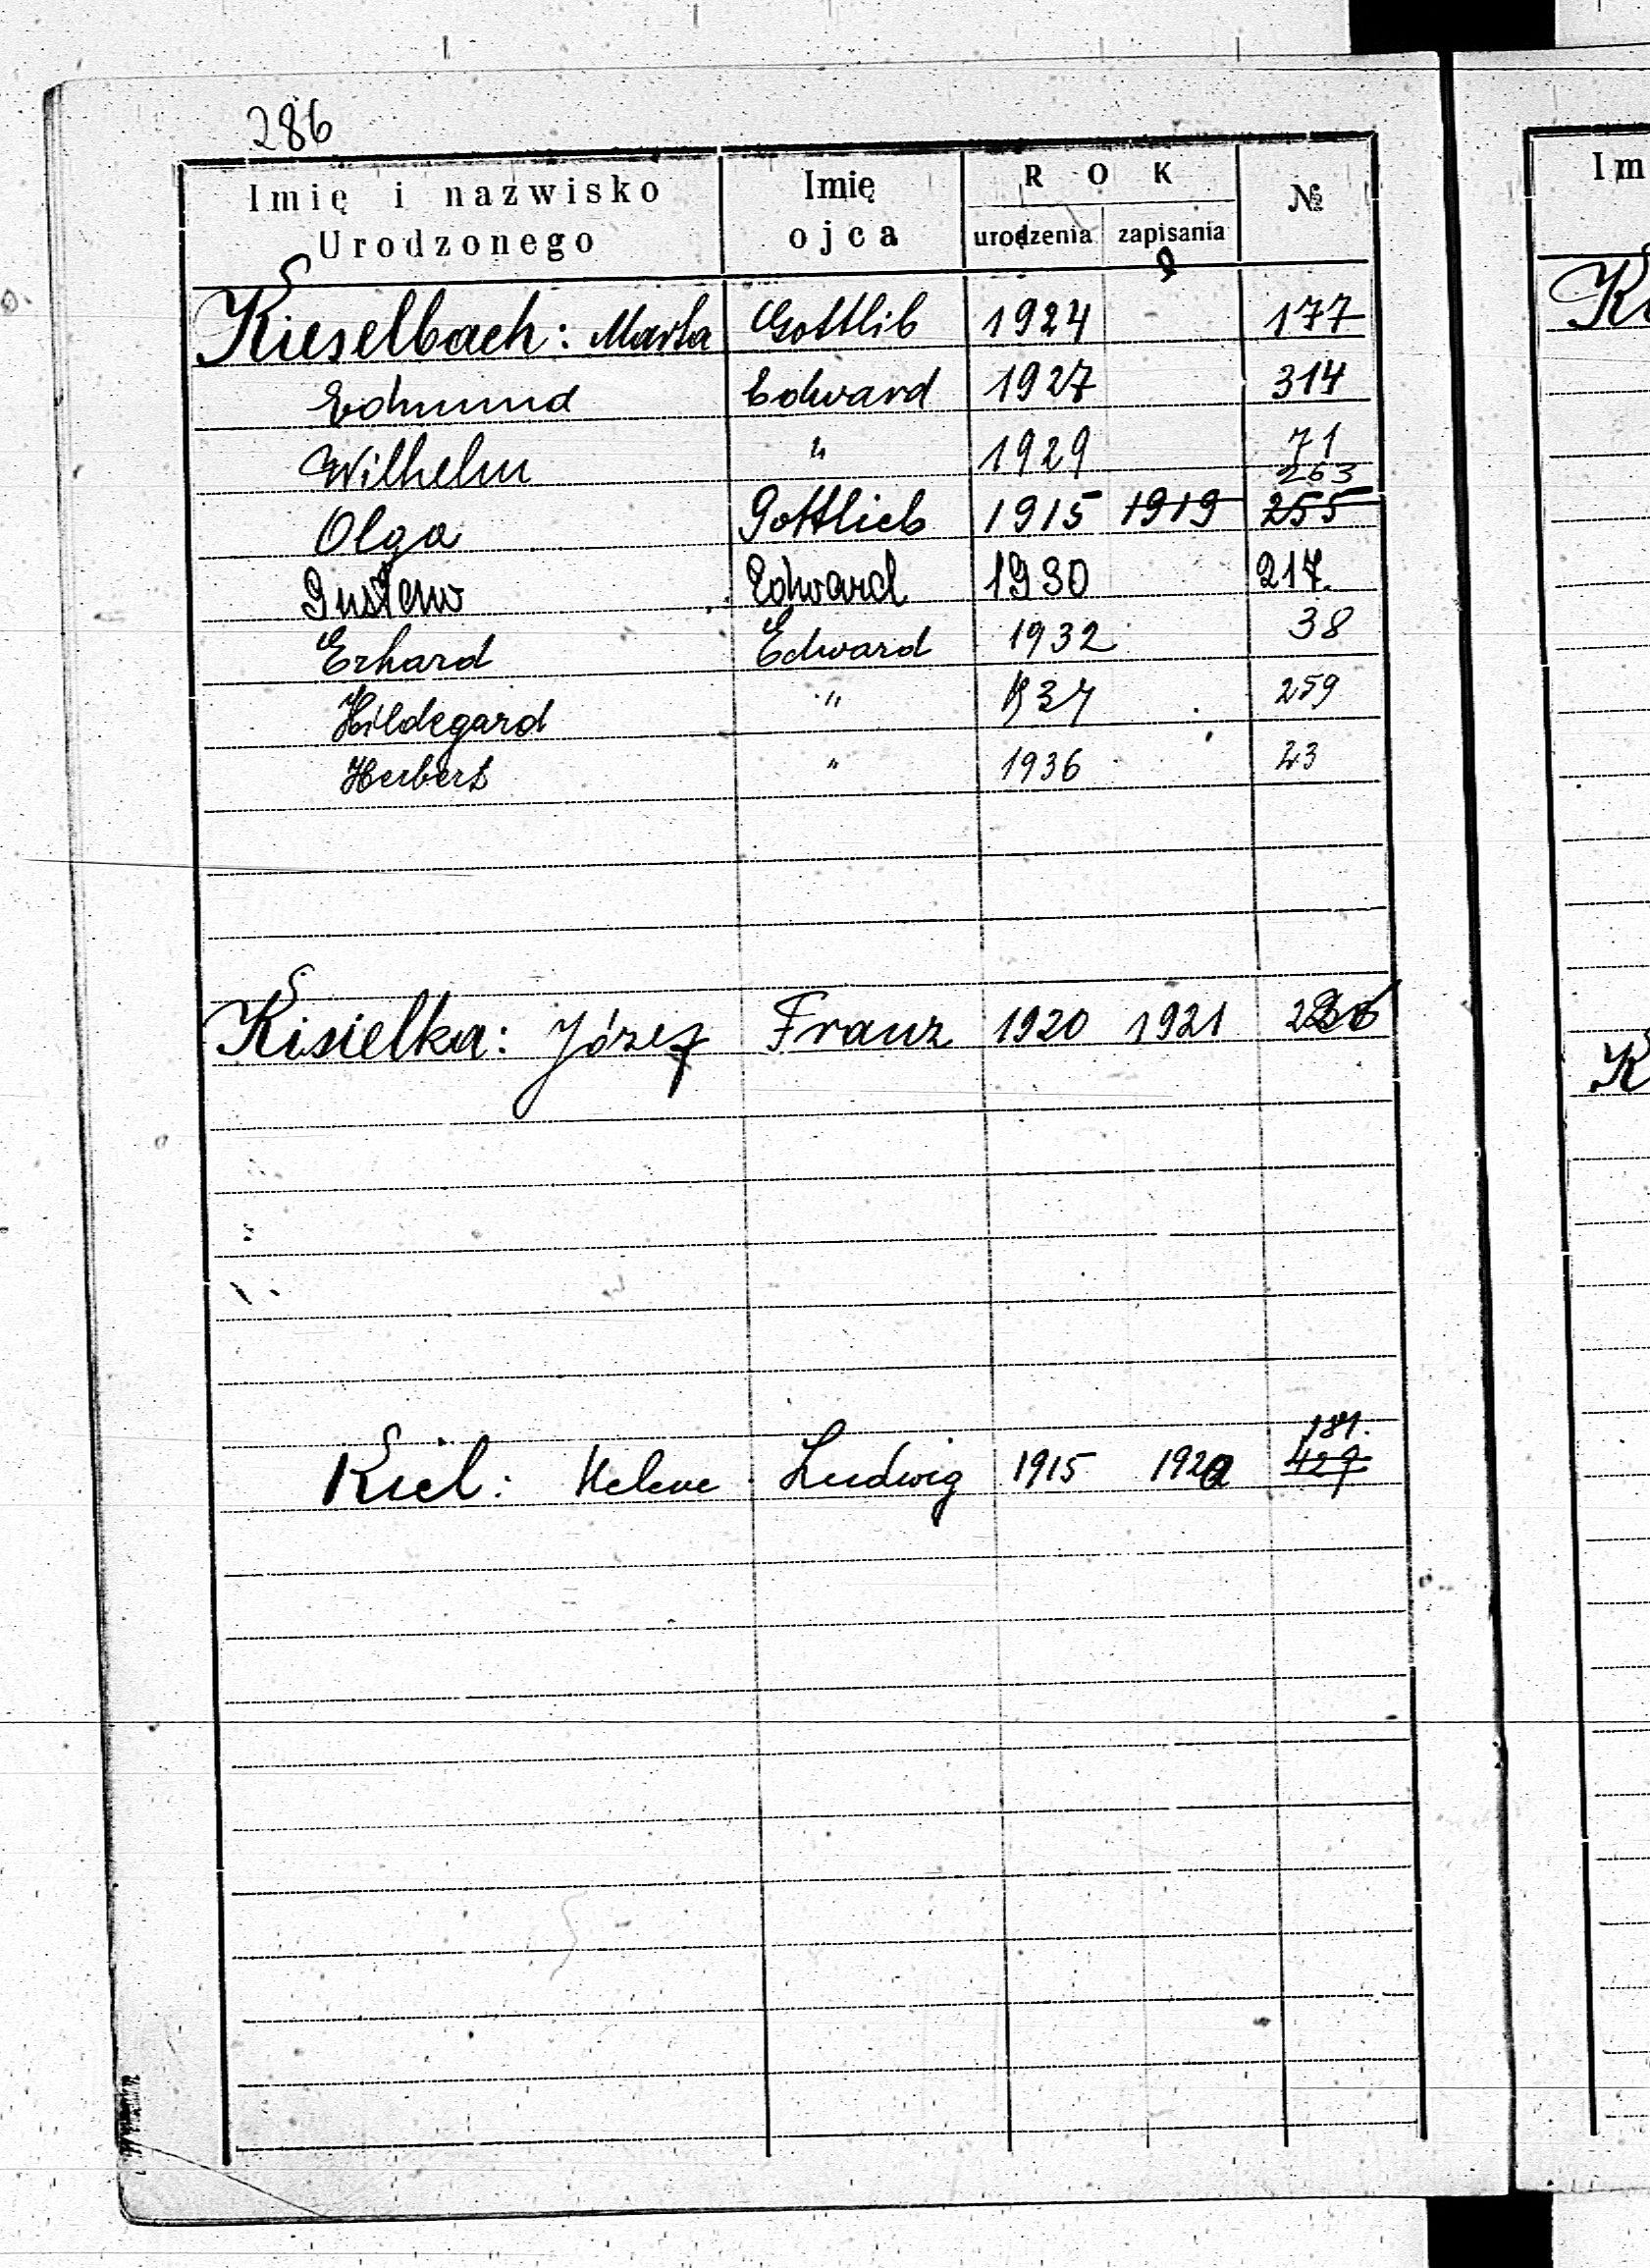 286
Imię i nazwisko Urodzonego Imię ojca ROK urodzenia zapisania №
Kieselbach: Marta Gottlib 1924 177
Edmund Edward 1927 314
Wilhelm " 1929 71
263
Olga Gottlieb 1915 1919 255
Gustaw Edward 1930 217.
Erhard Edward 1932 38
Hildegard " 1934 259
Herbert " 1936 23
Kisielka: Józef Franz 1920 1921
181.
Kiel: Helene Ludwig 1915 192 427
Im
K
K